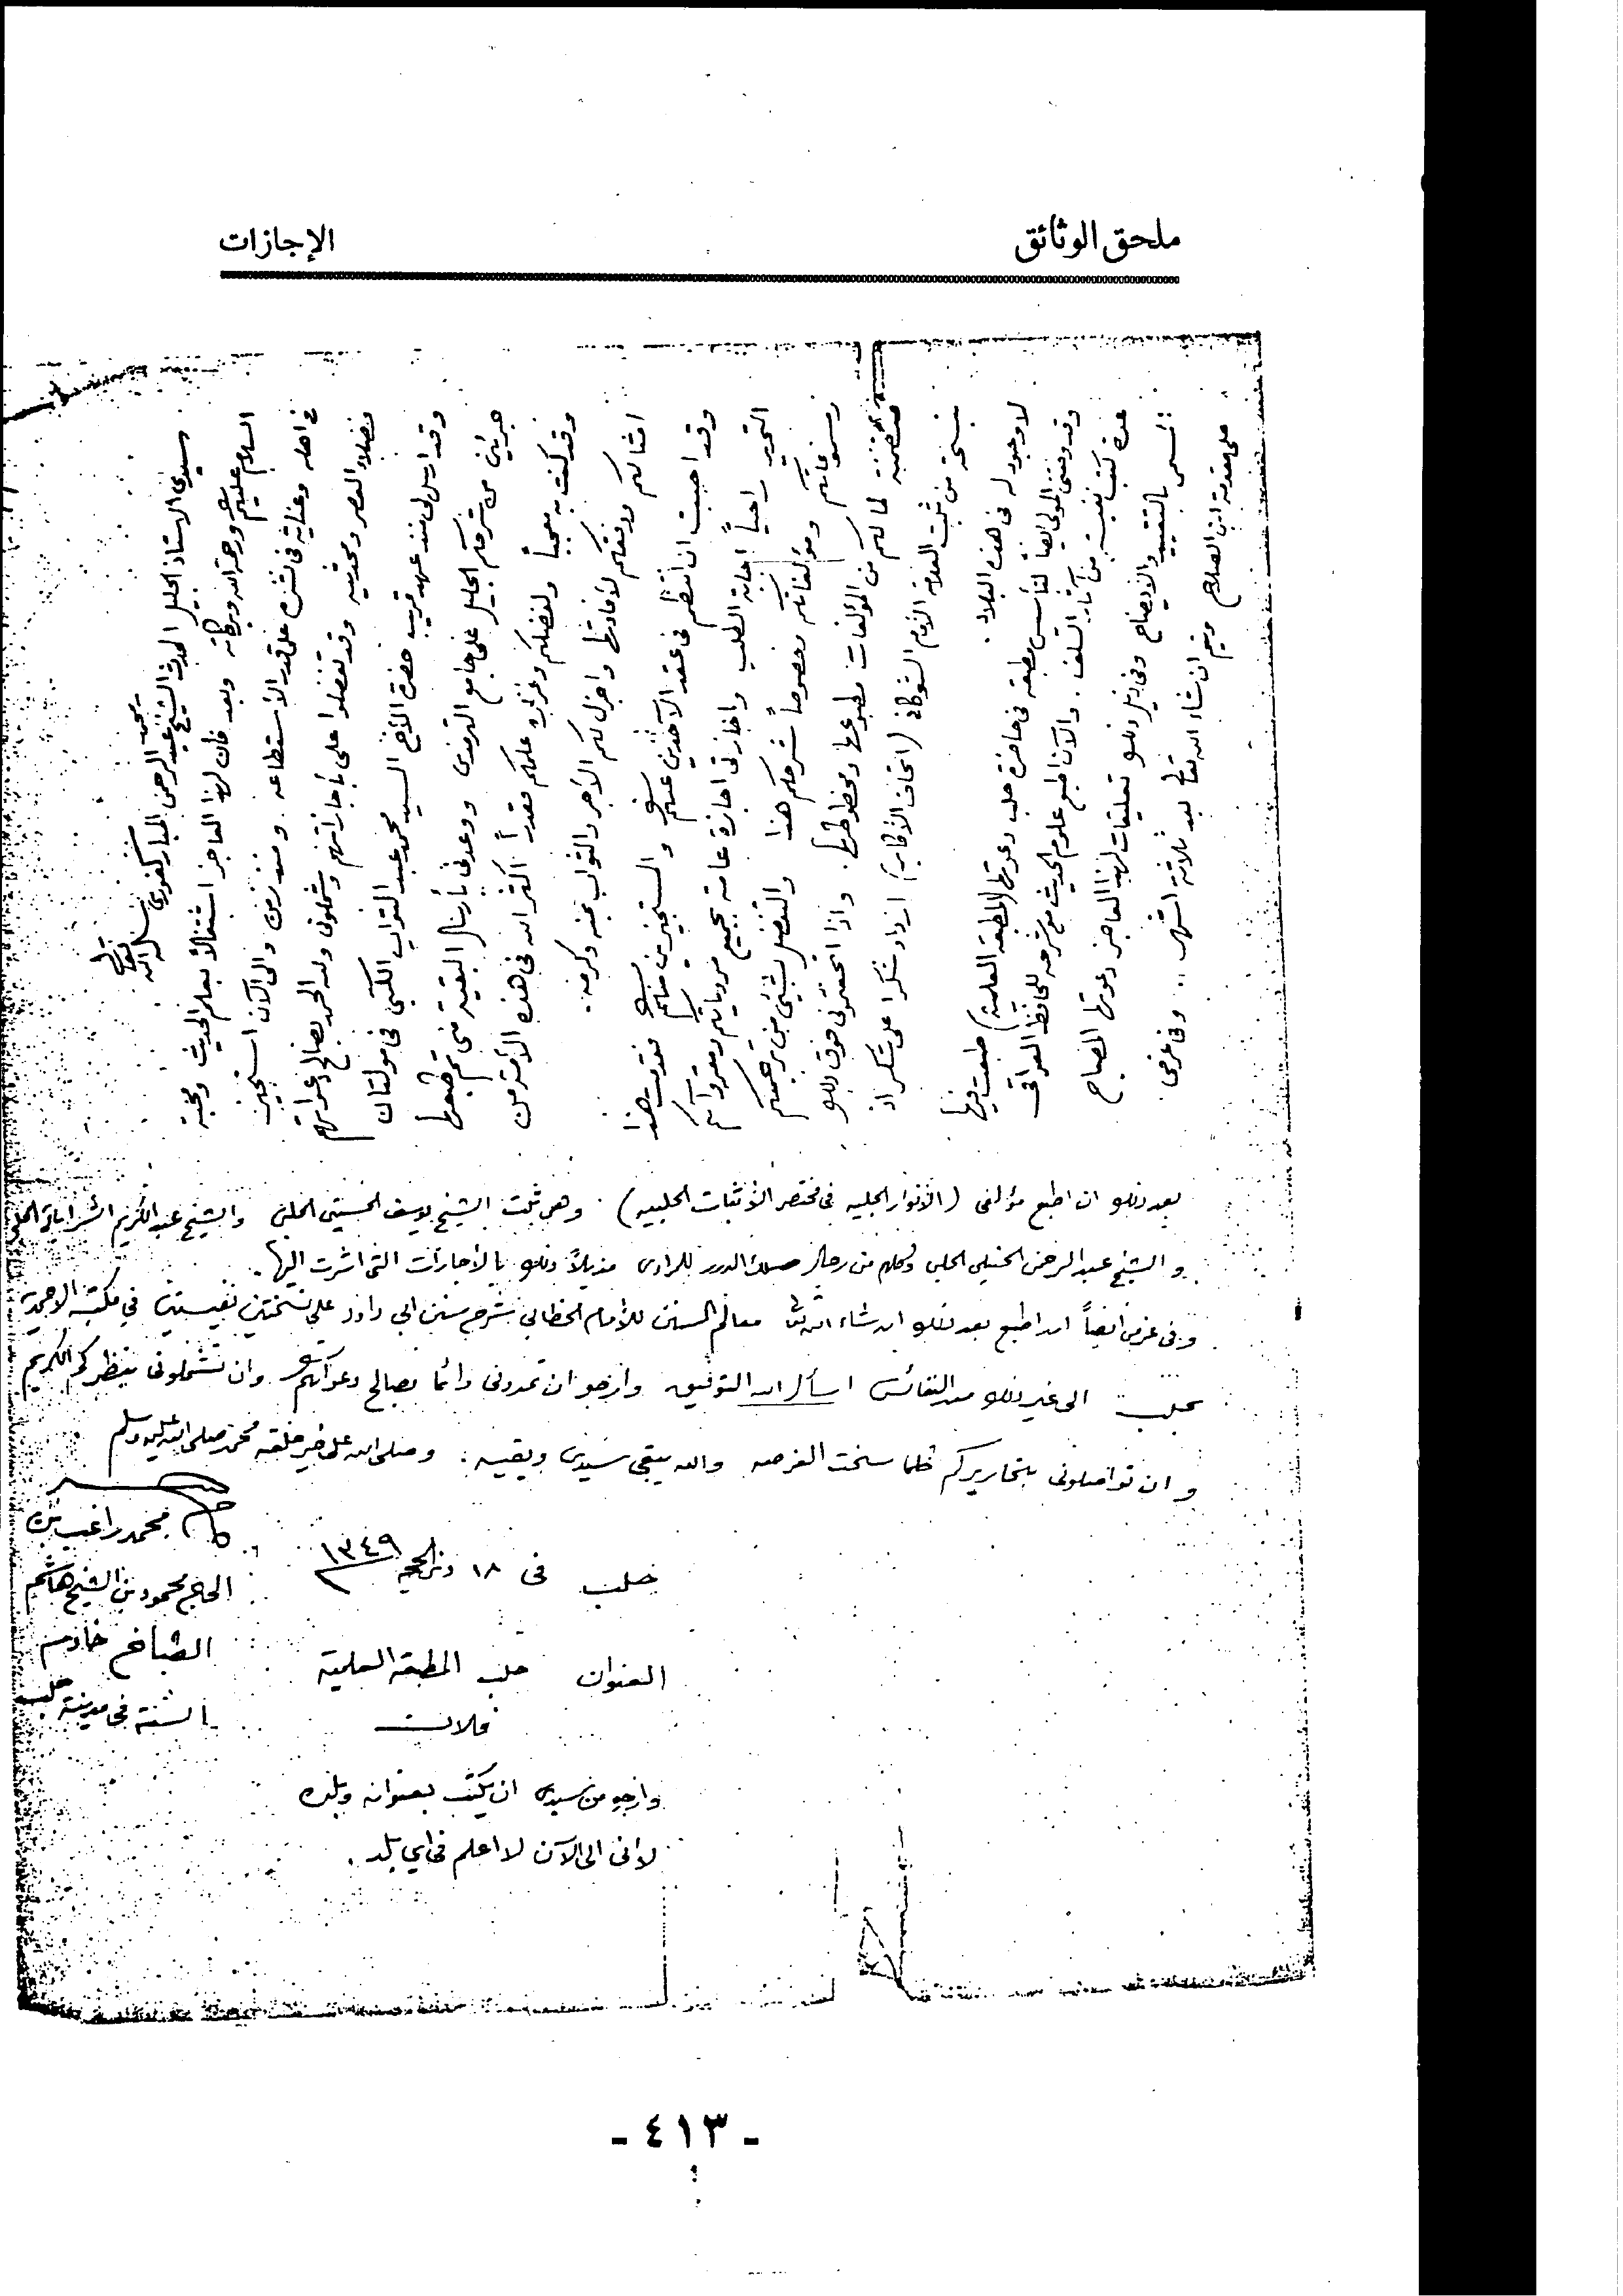 ملحق الوثائق
الإجازات
سيدي الاستاذ الجليل المحدث الشيخ عبد الرحمن المباركفوري سلمه الله تعالى
السلام عليكم ورحمة الله وبركاته وبعد فان لهذا العاجز اشتغالاً بعلم الحديث ومحبة
في اهله وعناية في نشره على قدر الاستطاعه . ومنذ زمن والى الآن استجيز
فضلاء العصر ومحدثيه وقد تفضلوا علي بأجازاتهم وشملوني ولله الحمد بصالح دعواتهم
وقد ارسل لي منذ عهد قريب حضرة الأخ السيد محمد عبد التواب الكتبي في مولتان
جزئين من شرحكم الجليل على جامع الترمذي ووعدني بأرسال البقية متى تم طبعها
وقد كنت به معجباً ولفضلكم وغزارة علمكم مقدراً اكثر الله في هذه الأمة من
امثالكم ووفقكم لأفادتها واجزل لكم الأجر والثواب بمنه وكرمه .
وقد احببت ان انتظم في عقد الآخذين عنكم والمستجيزين منكم فقدمت هذا
التحرير راجياً اجابة الطلب واجازتي اجازة عامة بجميع مروياتكم ومقروآتكم
ومسموعاتكم ومؤلفاتكم وخصوصاً شرحكم هذا والتفضل بشيء من ترجمتكم
متضمنة لما لكم من المؤلفات مطبوعها ومخطوطها . واذا اتحفتموني فوق ذلك
بنسخة من ثبت العلامه الأمام الشوكاني (اتحاف الأكابر) ازداد شكرا على شكر اذ
لا وجود له في هذه البلاد .
وقد وفقني المولى ايضاً لتأسيس مطبعة في حاضرة حلب دعوتها (المطبعة العلمية) طبعت فيها
عدة كتب نفيسة من آثار السلف . والآن اطبع علوم الحديث مع شرحه للحافظ العراقي
المسمى بالتقييد والأيضاح وفي ذيل ذلك تعليقات لهذا العاجز دعوتها المصباح
على مقدمة ابن الصلاح وسيتم ان شاء الله تعالى بعد ثلاثة اشهر .. وفي عزمي
بعد ذلك ان اطبع مؤلفي (الأنوار الجليه في مختصر الأثبات الحلبيه) . وهي ثبت الشيخ يوسف الحسيني الحلبي والشيخ عبد الكريم الشراباتي الحلبي
و الشيخ عبد الرحمن الحنبلي الحلبي وكلهم من رجال سلك الدرر للمرادي مذيلاً ذلك بالأجازات التي اشرت اليها .
وفي عزمي ايضاً ان اطبع بعد ذلك ان شاء الله تعالى معالم السنن للأمام الخطابي شرح سنن ابي داود على نسختين نفيستين في مكتبة الاحمدية
بحلب الى غير ذلك من النفائس اسأل الله التوفيق وارجو ان تمدوني دائما بصالح دعواتكم وان تشملوني بنظركم الكريم
و ان تواصلوني بتحاريركم كلما سنحت الفرصه والله يبقي سيدي ويقيه . وصلى الله على خير خلقه محمد صلى الله عليه وسلم
حلب في ١٨ ذي الحجه ١٣٤٩
محمد راغب بن
الحاج محمود بن الشيخ هاشم
الطباخ خادم
السنة في مدينة حلب
العنوان حلب المطبعة العلمية
فلان
وارجو من سيدي ان يكتب بعنوانه وبلده
لاني الى الآن لا اعلم في اي بلد .
- ٤١٣ -